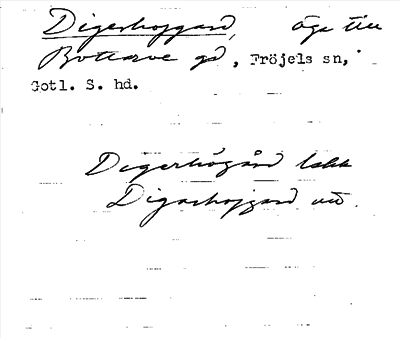 Digerhojgard, äga till
Botterve gd, Fröjels sn,
Gotl. S. hd.
Digerhögård lekk
Digerhojgard utt.